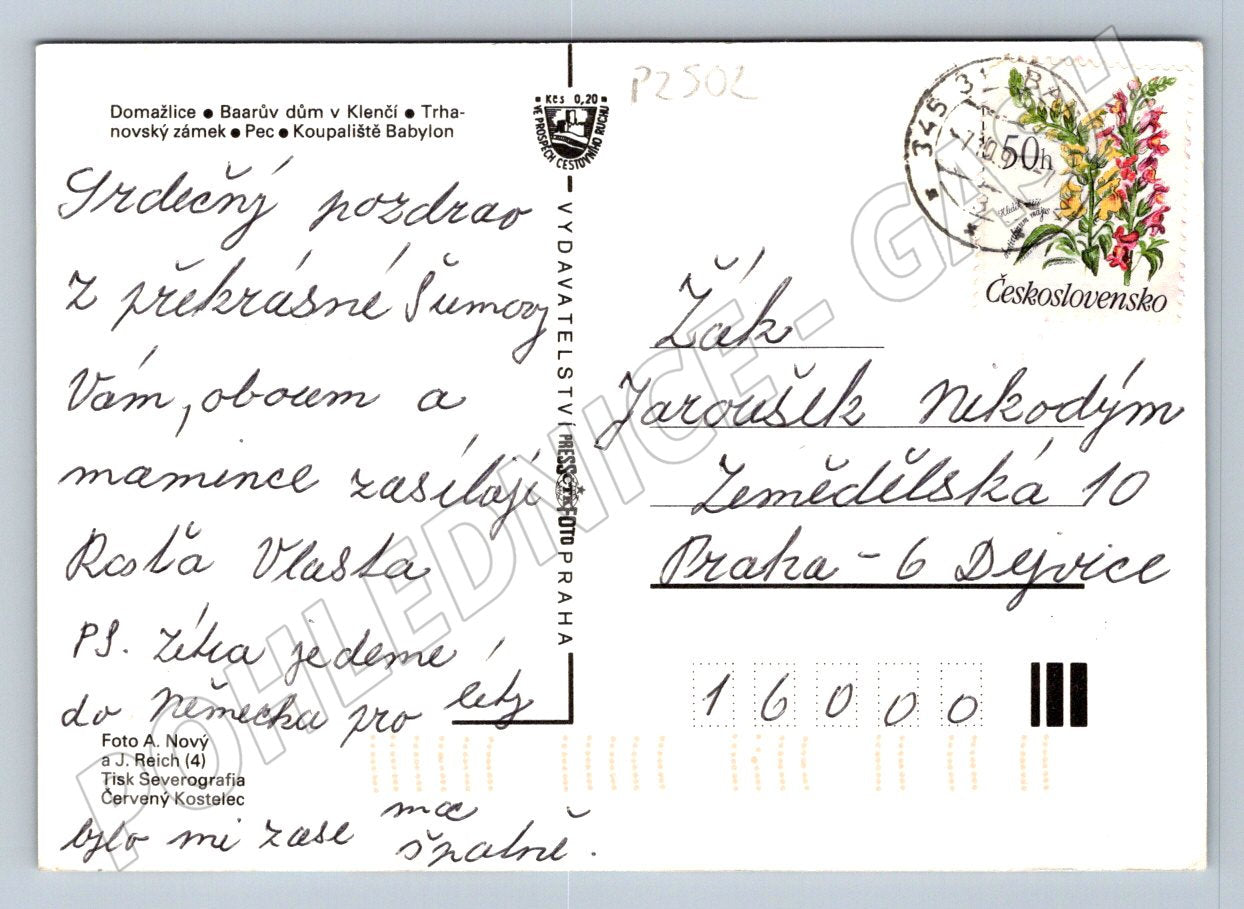 Domažlice ● Baarův dům v Klenčí ● Trha-
novský zámek ● Pec ● Koupaliště Babylon
Srdečný pozdrav
z překrásné Šumavy
Vám, oboum a
mamince zasílají
Rosťa Vlasta
PS. Zítra jedeme
do Německa pro léky
bylo mi zase moc
špatně.
Foto A. Nový
a J. Reich (4)
Tisk Severografia
Červený Kostelec
Kčs 0,20
VE PROSPĚCH CESTOVNÍHO RUCHU
VYDAVATELSTVÍ PRESSFOTO PRAHA
PZ502
345 3
50h
Československo
Žák
Jaroušek Nikodým
Zemědělská 10
Praha - 6 Dejvice
16000
POHLEDNICE - GASH